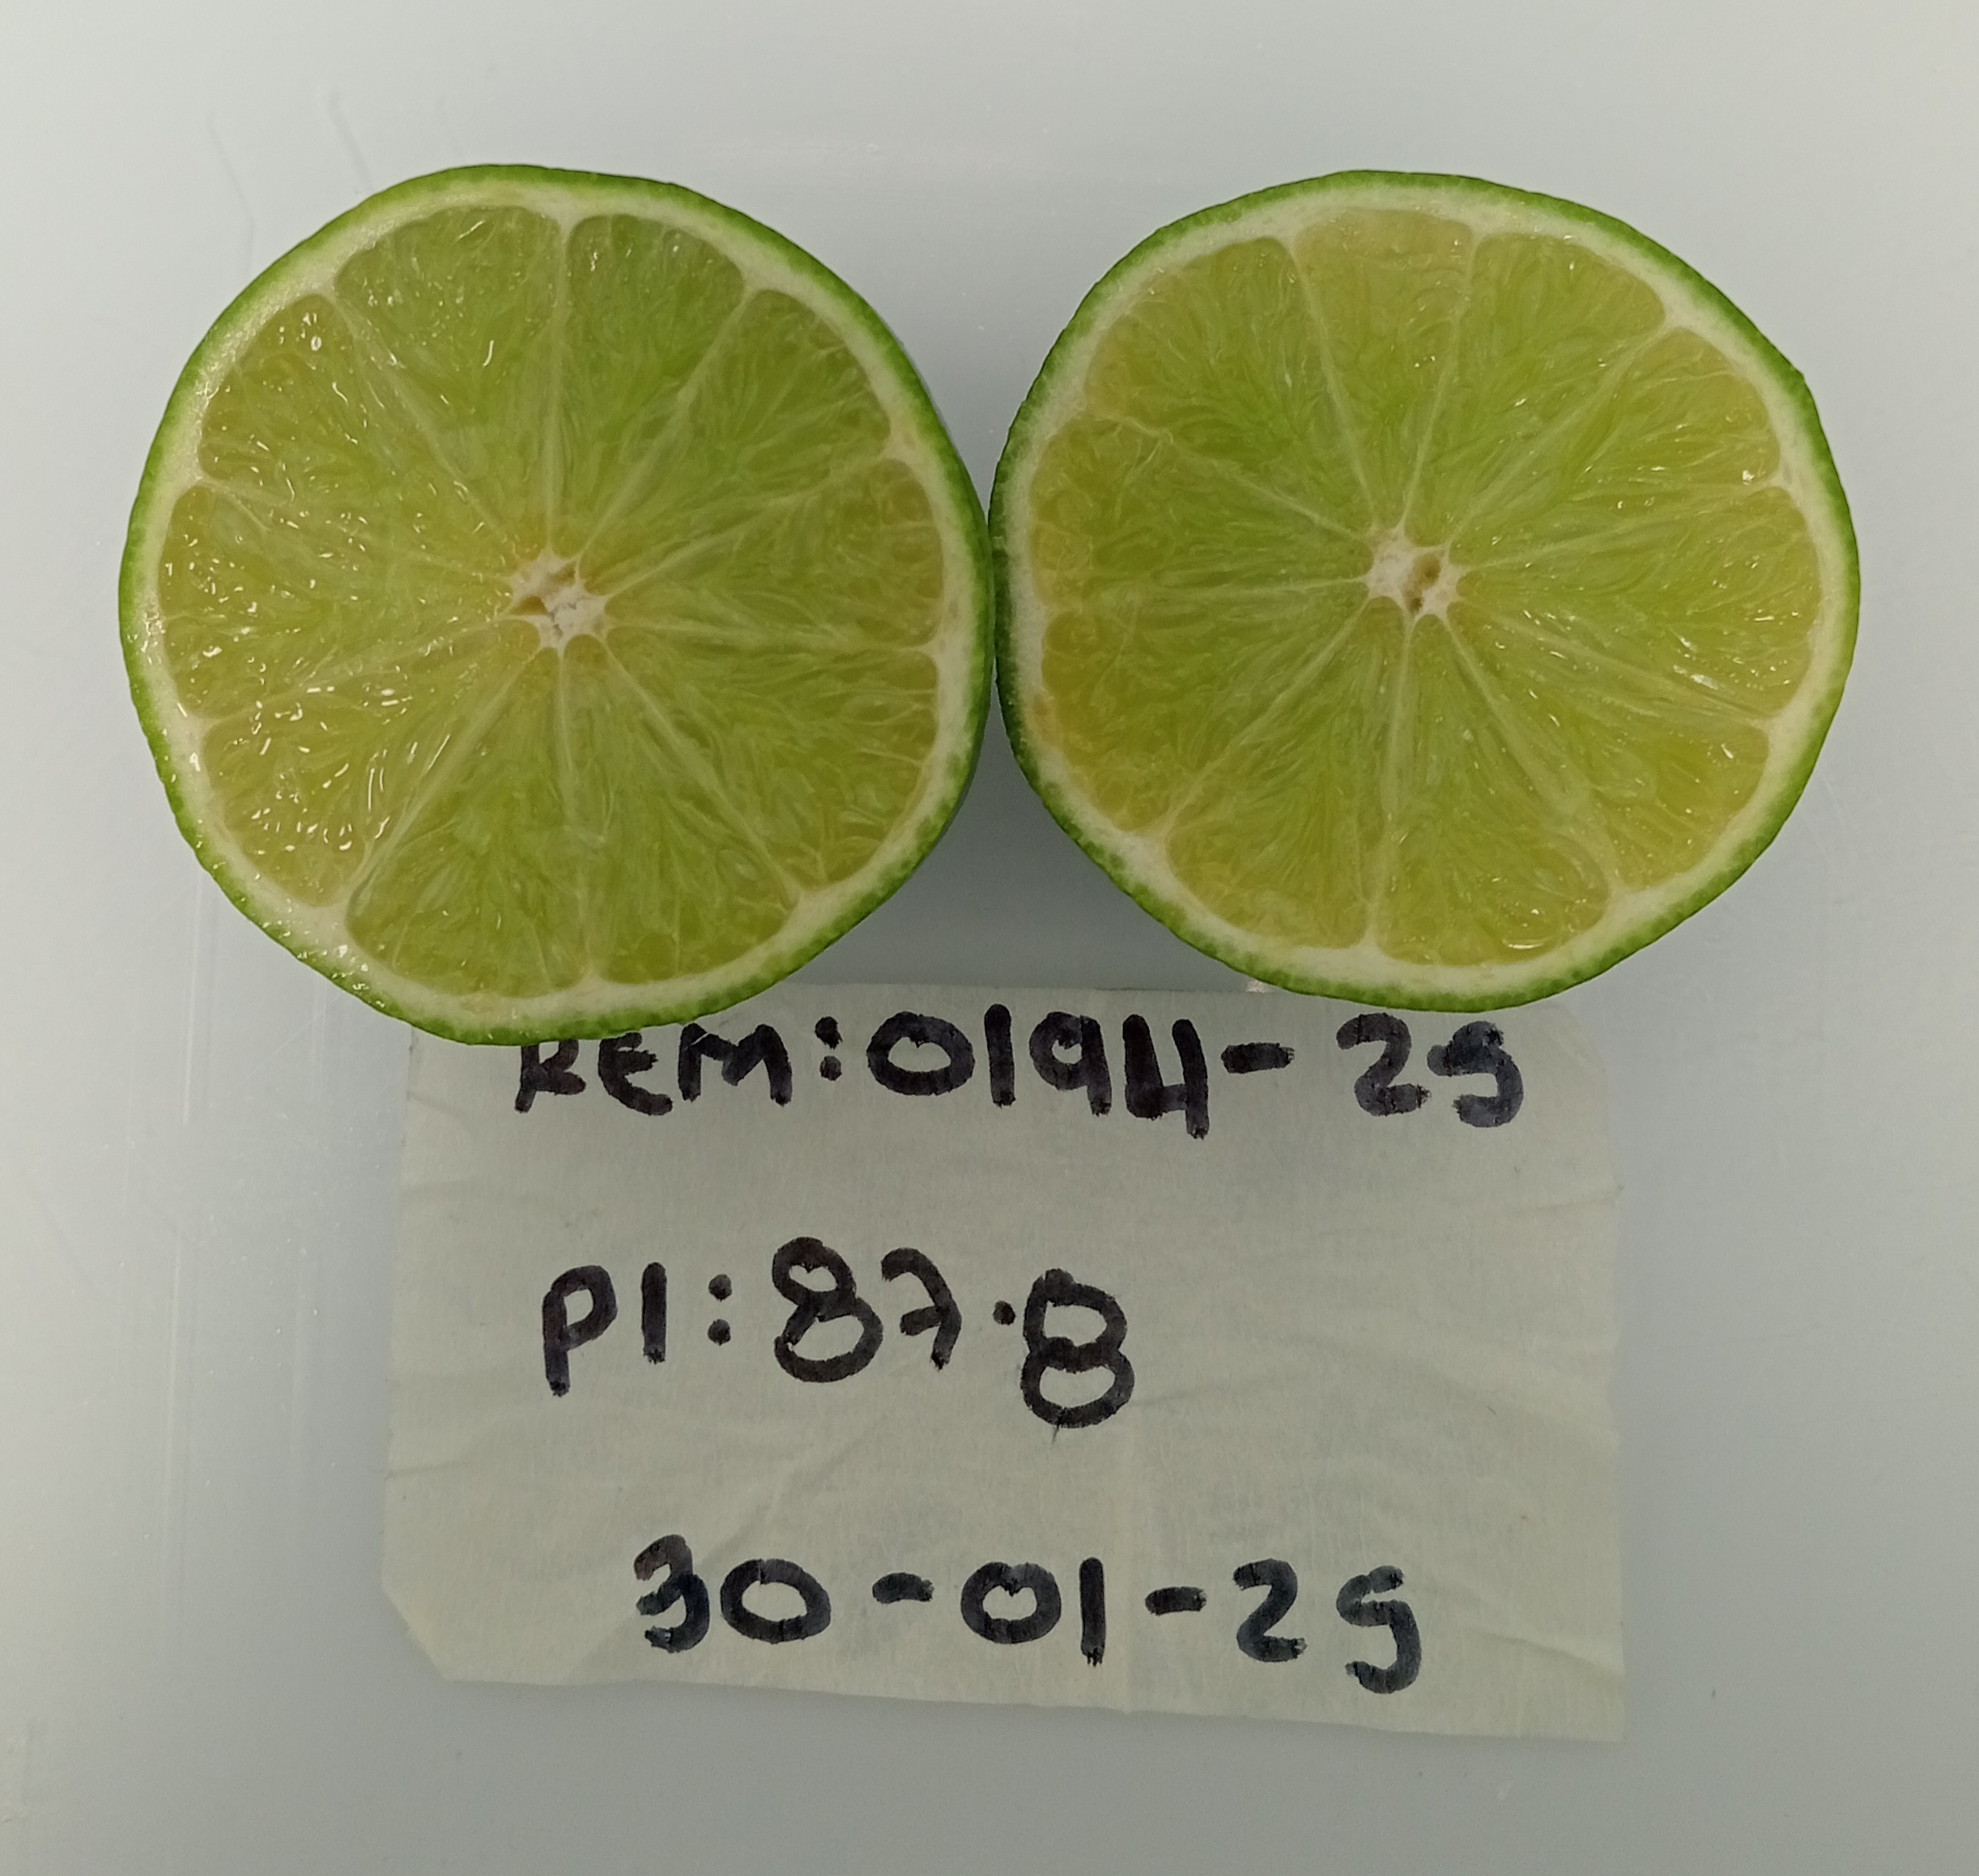 REM:0194-25
PI:87.8
30-01-25